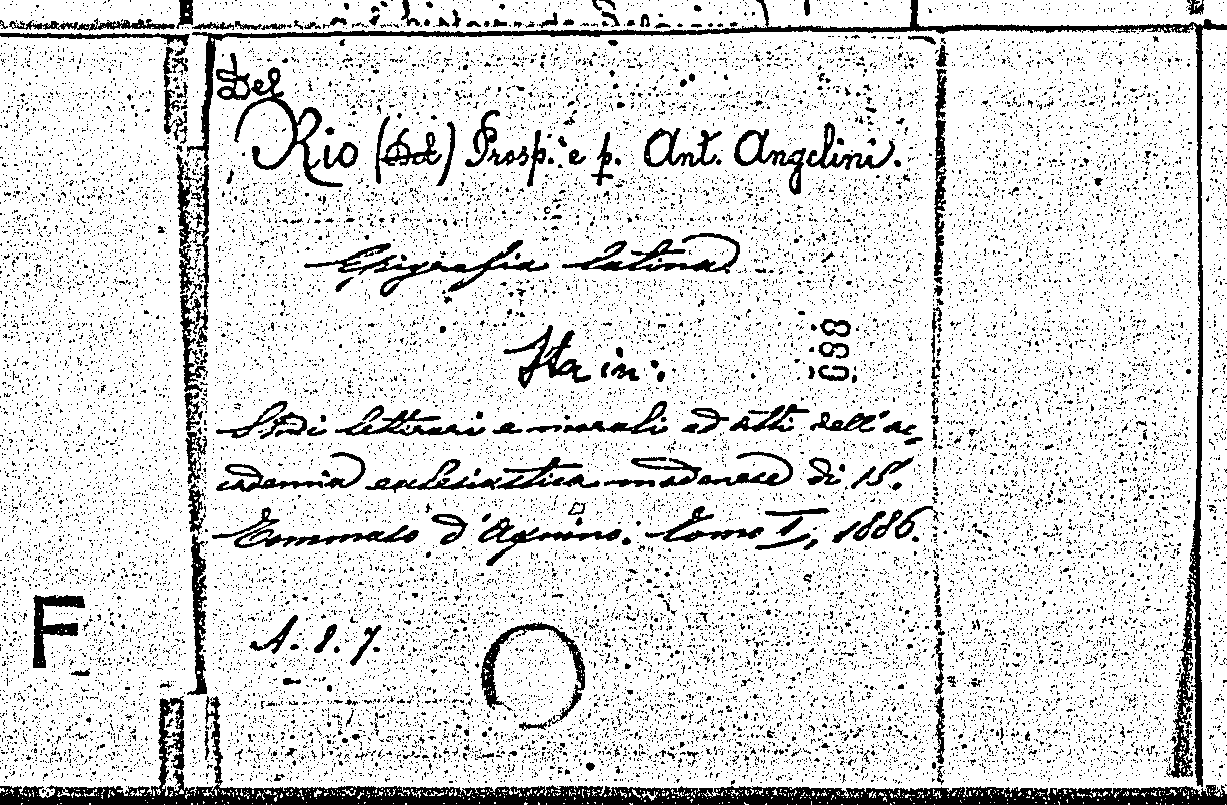 Del
Rio (Del) Prosp. e p. Ant. Angelini.
Epigrafia latina
Sta in:
689
Studi letterari e morali ed atti dell'ac-
cademia ecclesiastica modenese di S.
Tommaso d'Aquino. Tomo I, 1886.
F
A. 8. 7.